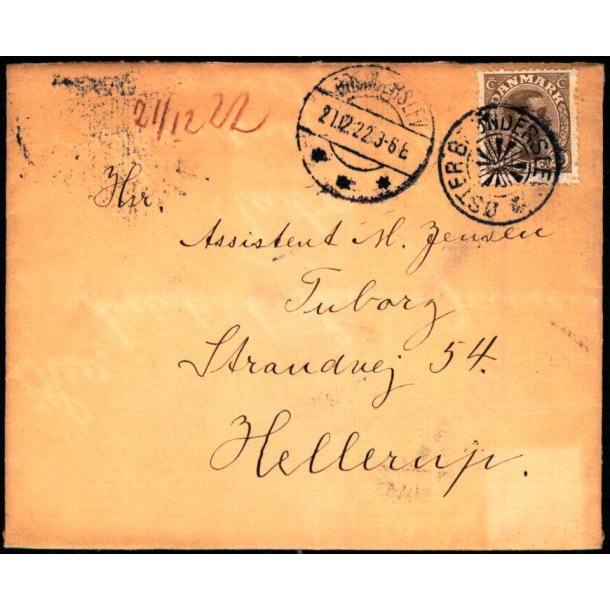 21/12 22
BRØNDERSLEV
21.12.22.3-6 E
DANMARK
ØSTER BRØNDERSLEV
Hr.
Assistent M. Jensen
Tuborg
Strandvej 54.
Hellerup.